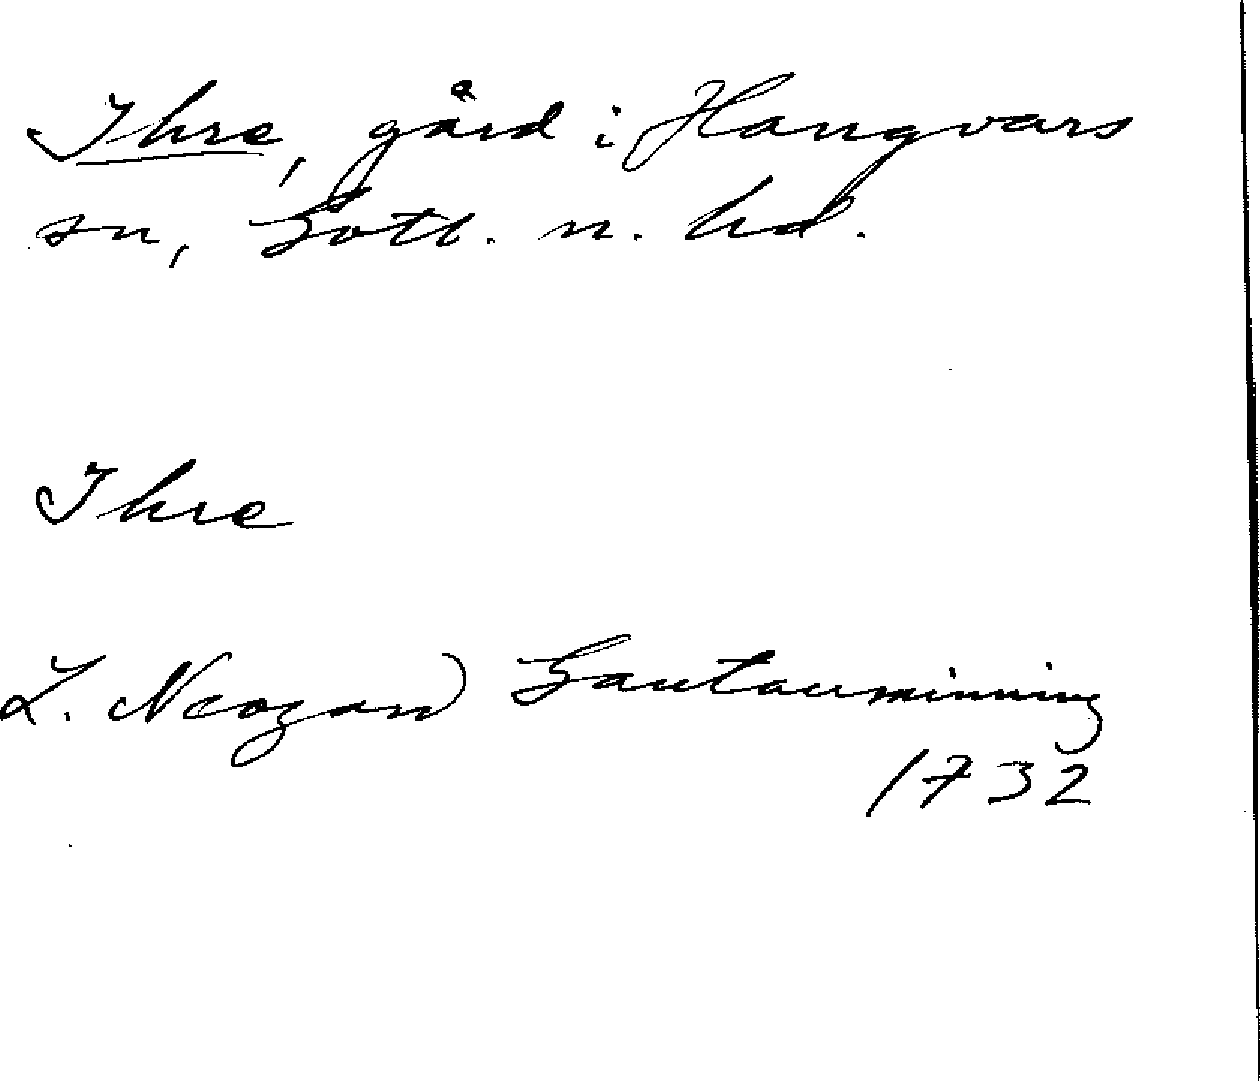 Ihre, gård i Hangvars
sn, Gotl. n. hd.
Ihre
L. Neogard Gautauminning
1732